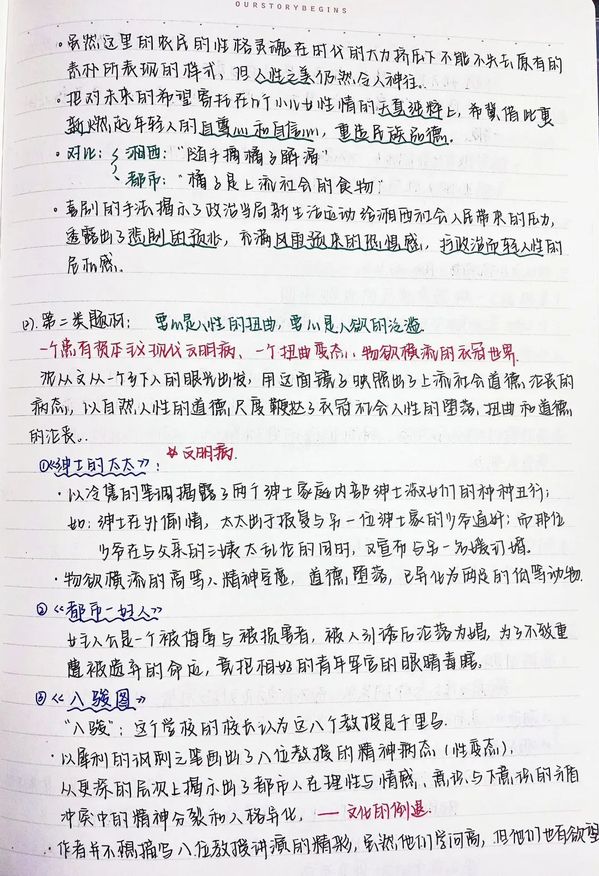 OURSTORYBEGINS
·虽然这里的农民的性格灵魂在时代的大力挤压下不能不失去原有的
素朴所表现的样式，但人性之美仍然令人神往。
·把对未来的希望寄托在几个小儿女性情的天真纯粹上，希冀借此重
新燃起年轻人的自尊心和自信心，重造民族品德。
·对比：湘西："随手摘橘子解渴"
都市："橘子是上流社会的食物"
·喜剧的手法揭示了政治当局新生活运动给湘西社会人民带来的压力，
透露出了悲剧的预兆，充满风雨预来的恐惧感，拒政治而轻人性的
危机感。
(2).第二类题材：要么是人性的扭曲，要么是人欲的泛滥
一个患有资本主义现代文明病、一个扭曲变态、物欲横流的衣冠世界.
沈从文从一个乡下人的眼光出发，用这面镜子映照出了上流社会道德沦丧的
病态，以自然人性的道德尺度鞭挞了衣冠社会人性的堕落、扭曲和道德
的沦丧。
①《绅士的太太》：☆文明病.
·以冷隽的笔调揭露了两个绅士家庭内部绅士淑女们的种种丑行；
如：绅士在外偷情，太太出于报复与另一位绅士家的少爷通奸；而那位
少爷在与父亲的三姨太乱伦的同时，又宣布与另一名媛订婚.
·物欲横流的高等人精神空虚，道德堕落，已异化为两足的低等动物.
②《都市一妇人》
女主人公是一个被侮辱与被损害者，被人引诱后沦落为娼，为了不致重
遭被遗弃的命运，竟把相好的青年军官的眼睛毒瞎.
③《八骏图》
"八骏"：这个学校的校长认为这八个教授是千里马.
·以犀利的讽刺之笔画出了八位教授的精神病态（性变态），
从更深的层次上揭示出了都市人在理性与情感、意识与下意识的矛盾
冲突中的精神分裂和人格异化，——文化的倒退.
·作者并不想描写八位教授讲演的精彩，虽然他们学问高，但他们也有欲望